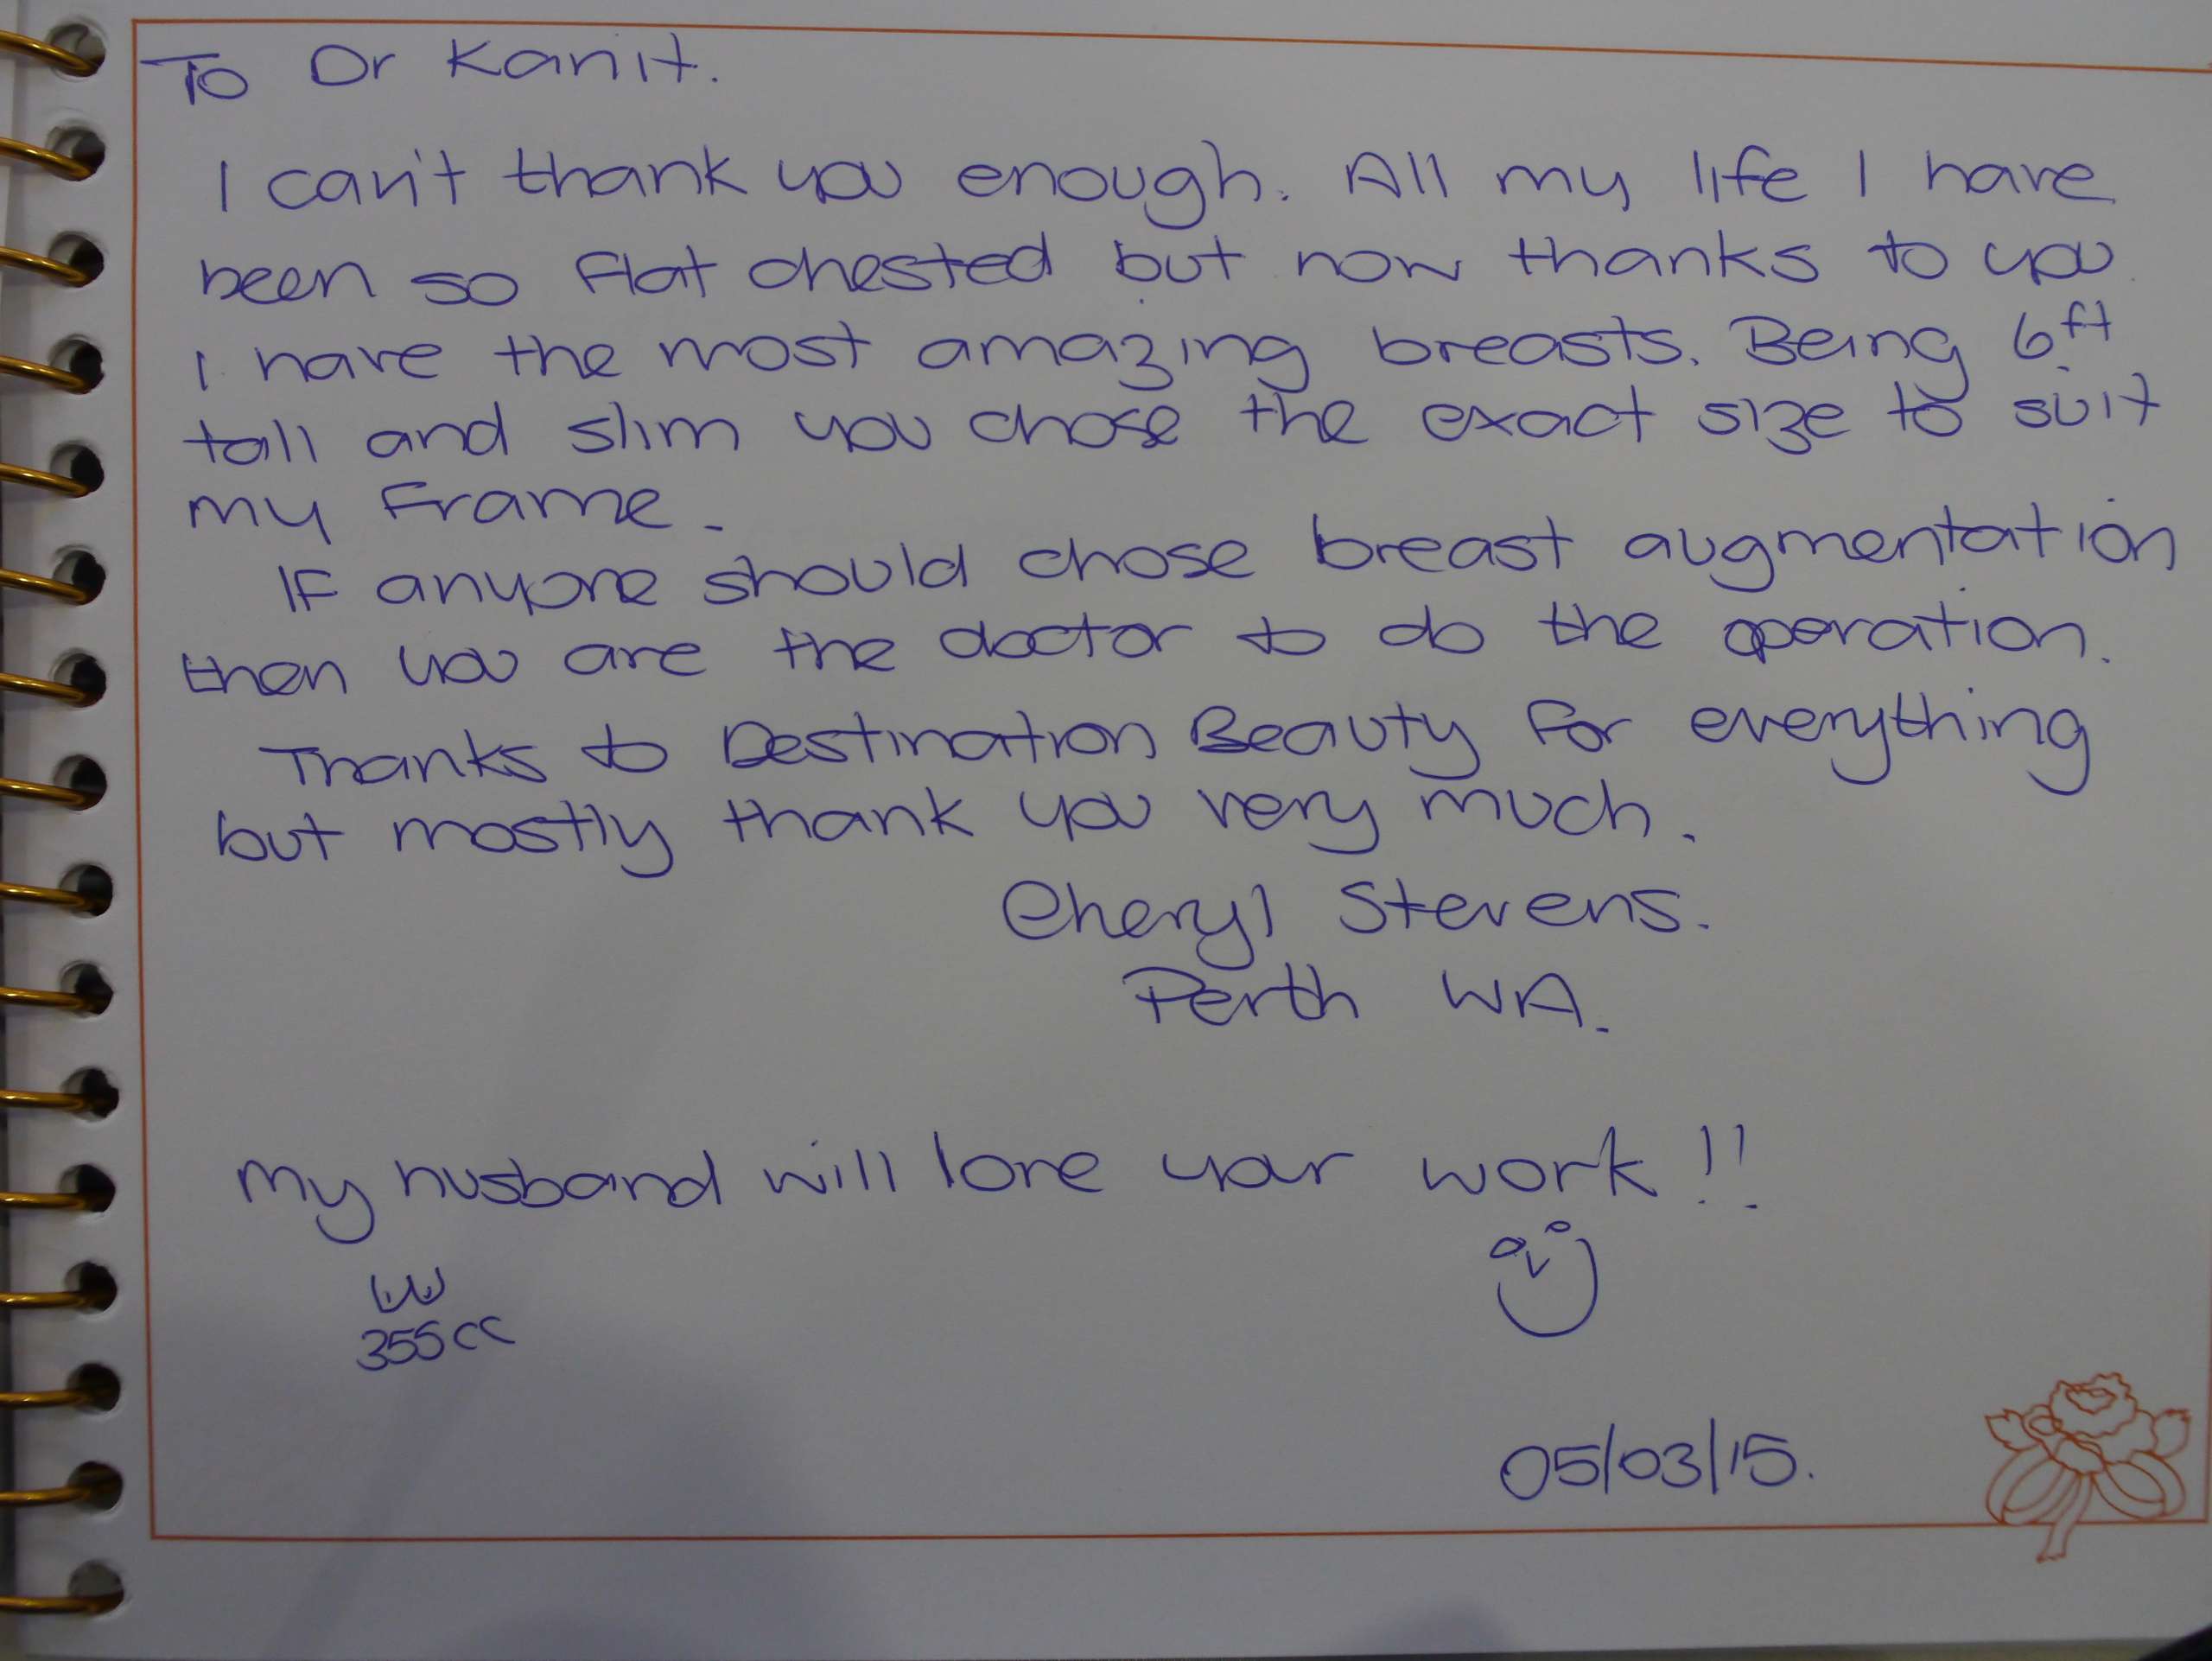 To Dr Kanit.
I can't thank you enough. All my life I have
been so flat chested but now thanks to you
I have the most amazing breasts. Being 6ft
tall and slim you chose the exact size to suit
my frame.
If anyone should chose breast augmentation
then you are the doctor to do the operation.
Thanks to Destination Beauty for everything
but mostly thank you very much.
Cheryl Stevens.
Perth WA.
My husband will love your work!!
355cc
05/03/15.